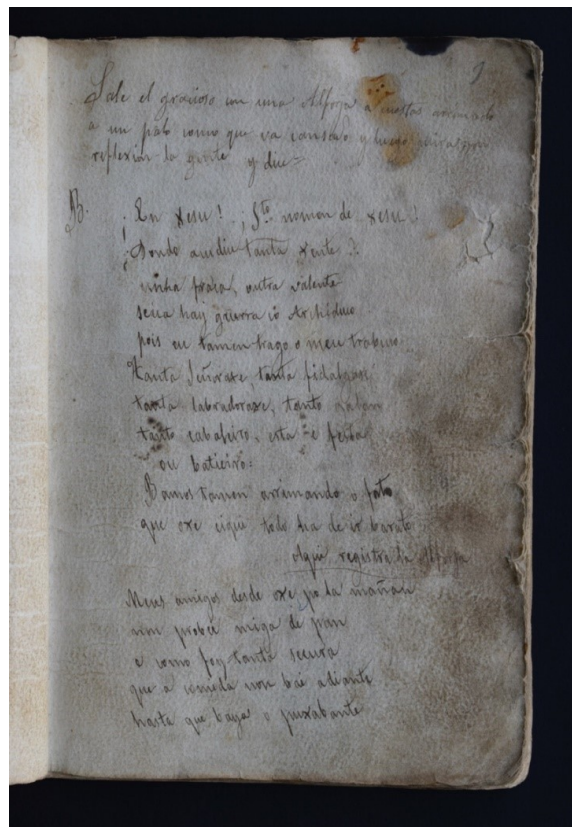 Sale el gracioso con una Alforja a cuestas arrimado
a un palo como que va cansado y luego mira con
reflexion la gente y dice=
B. ¡En xesu! ¡Sto nomen de xesu!
¿Donde acudiu tanta xente?
unha fraca, outra valente
seica hay guerra có Archiduc
pois eu tamen trago o meu trabuco
tanta Señoraxe tanta fidalguia
tanta labradoraxe, tanto galan
tanto cabaleiro, esta é festa
ou batieiro:
Bamos tamen arrimando o fato
que oxe aqui todo ha de ir barato
registra la Alforja
Meus amigos desde oxe po la mañan
non probei miga de pan
e como foy tanta secura
que a comeda non bai adiante
hasta que baya o puxabante